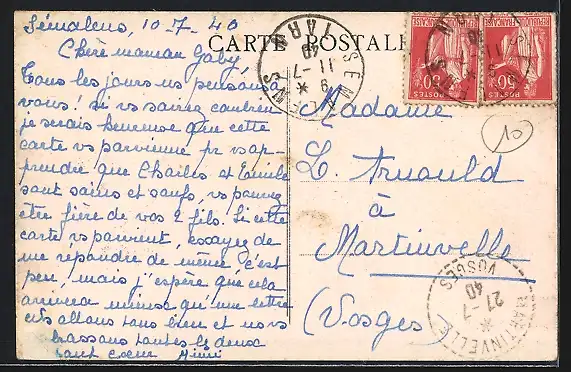 Sémalens, 10-7-40
Chère maman Gaby,
Tous les jours ns pensons à
vous ! si vs saviez combien
je serais heureuse que cette
carte vs parvienne pr vs ap-
prendre que Charles et Emile
sont sains et saufs, vs pouvez
être fière de vos 2 fils. Si cette
carte vs parvient, essayez de
me répondre de même, c'est
peu, mais j'espère que cela
arrivera mieux qu'une lettre
ns allons tous bien et ns vs
embrassons toutes les deux
tout coeur Mimi
CARTE POSTALE
SEMALENS
TARN
9 *
11-7
40
REPUBLIQUE FRANCAISE
POSTES
50c
REPUBLIQUE FRANCAISE
POSTES
50c
10
Madame
L. Arnould
à
Martinvelle
(Vosges)
MARTINVELLE
VOSGES
*
27-7
40